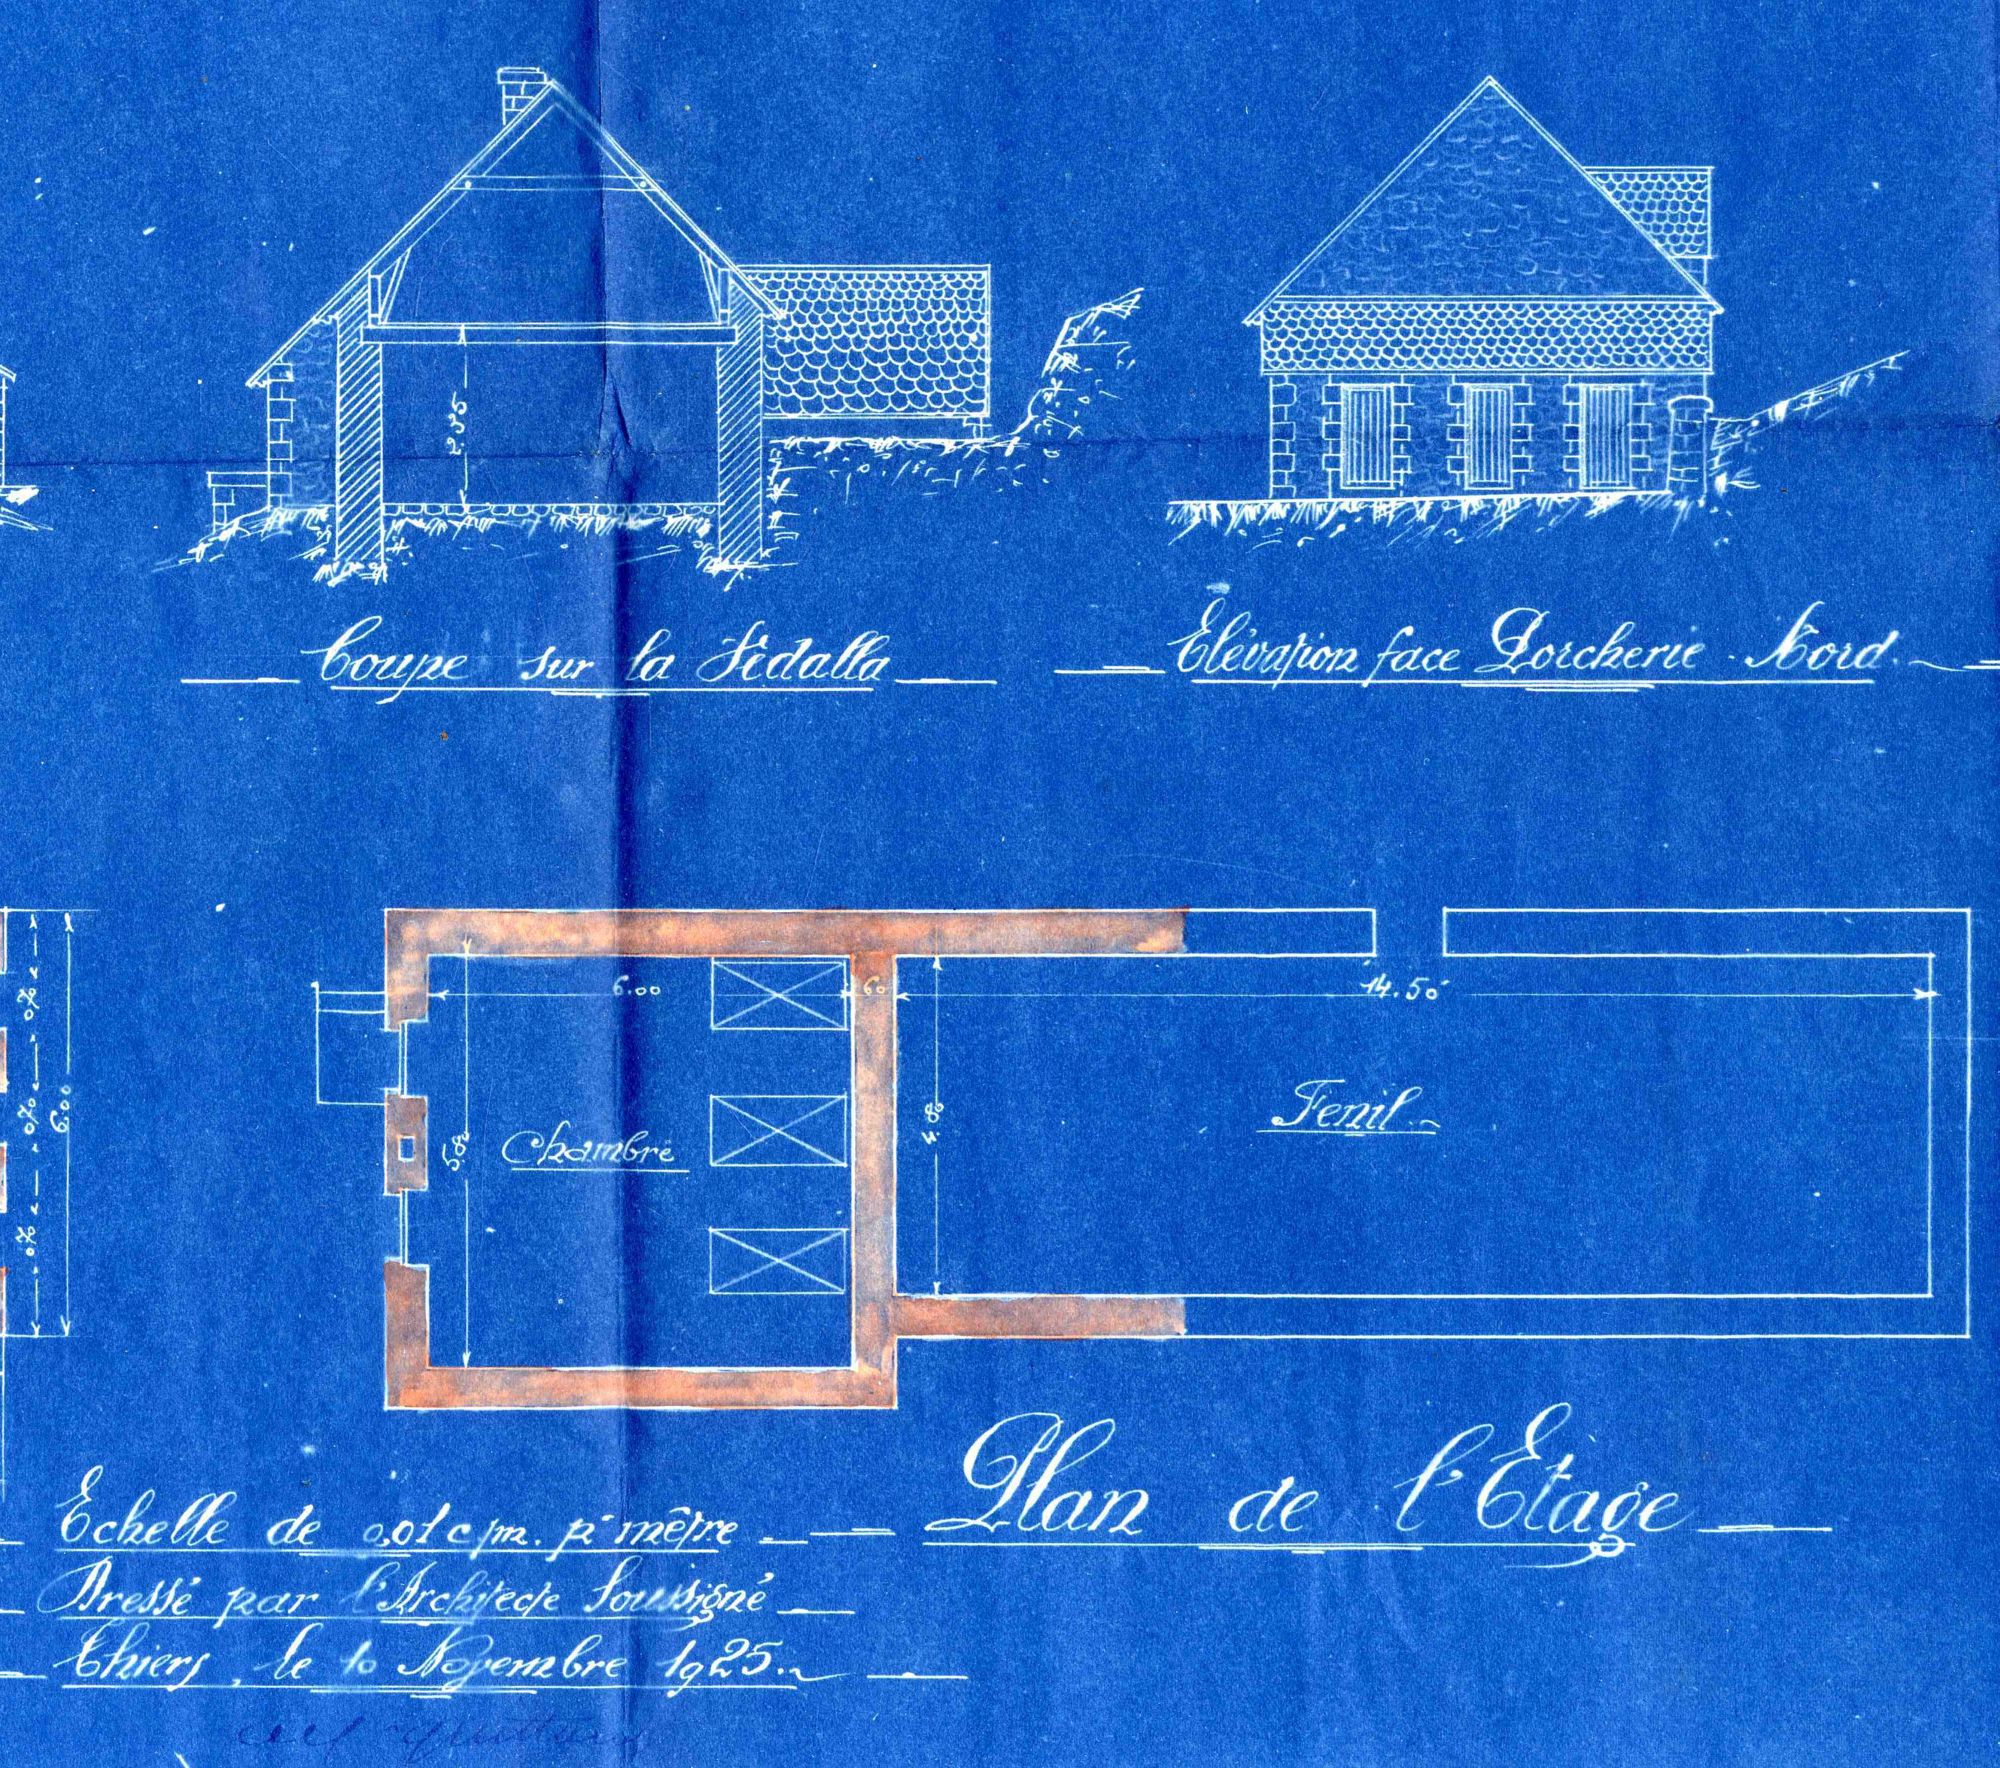 2.35
Coupe sur la Védalla
Élévation face Porcherie - Nord.
6.00
6.00
60
14.50
5.80
Chambre
4.80
Fenil
Plan de l'Étage
Echelle de 0,01 c/m. pr mètre
Dressé par l'Architecte Soussigné
Thiers, le 10 Novembre 1925.